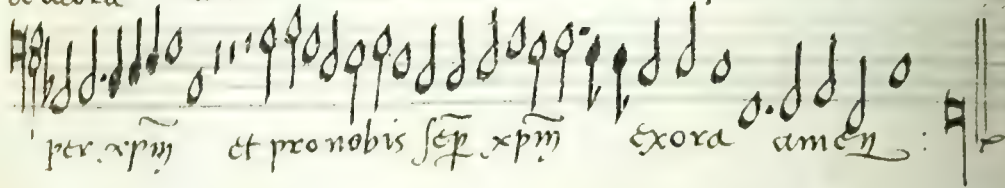 per xp̄m et pro nobis sēp xp̄m exora amen :